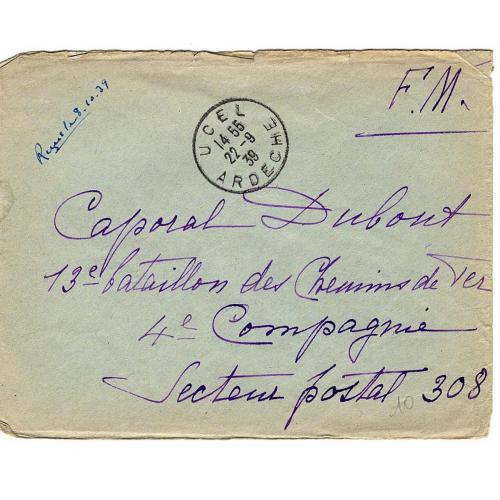 Reçu le 8.10.39
F.M.
UCEL
14 55
22 - 9
39
ARDECHE
Caporal Dubout
13e bataillon des Chemins de Fer
4e Compagnie
Secteur postal 308
10